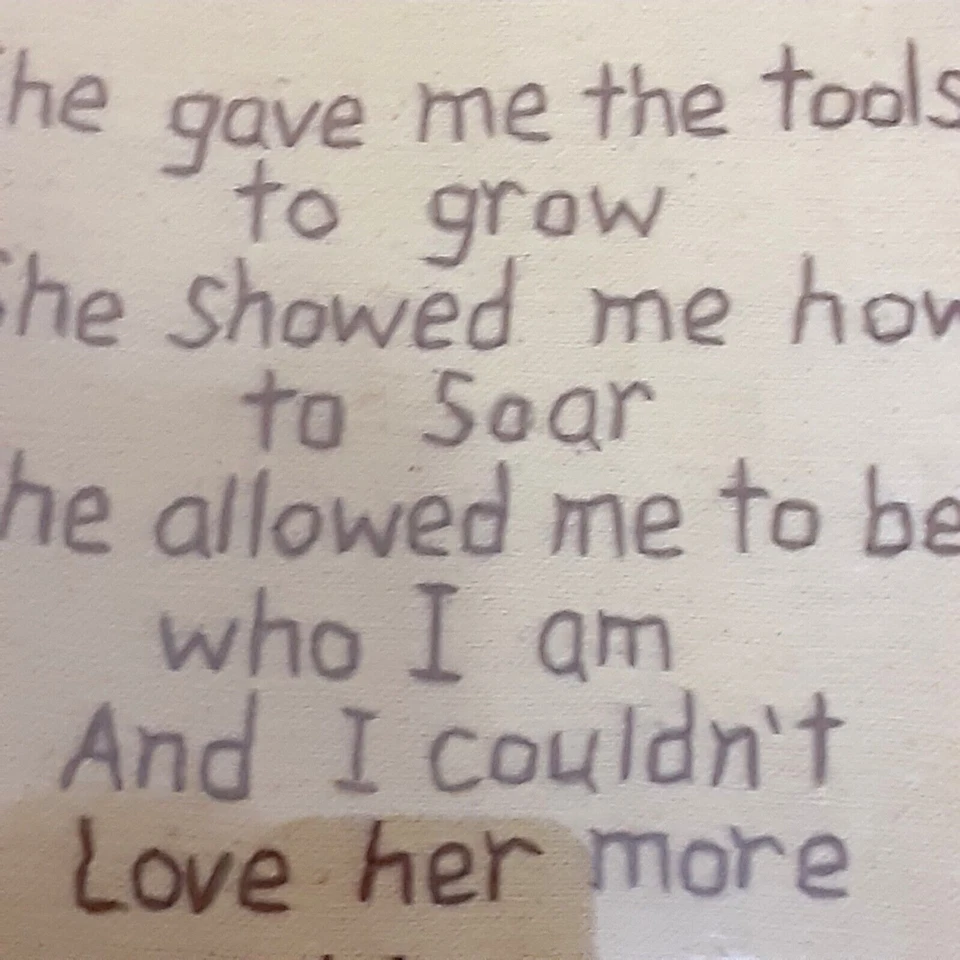 he gave me the tools
to grow
She showed me how
to Soar
he allowed me to be
who I am
And I couldn't
Love her more